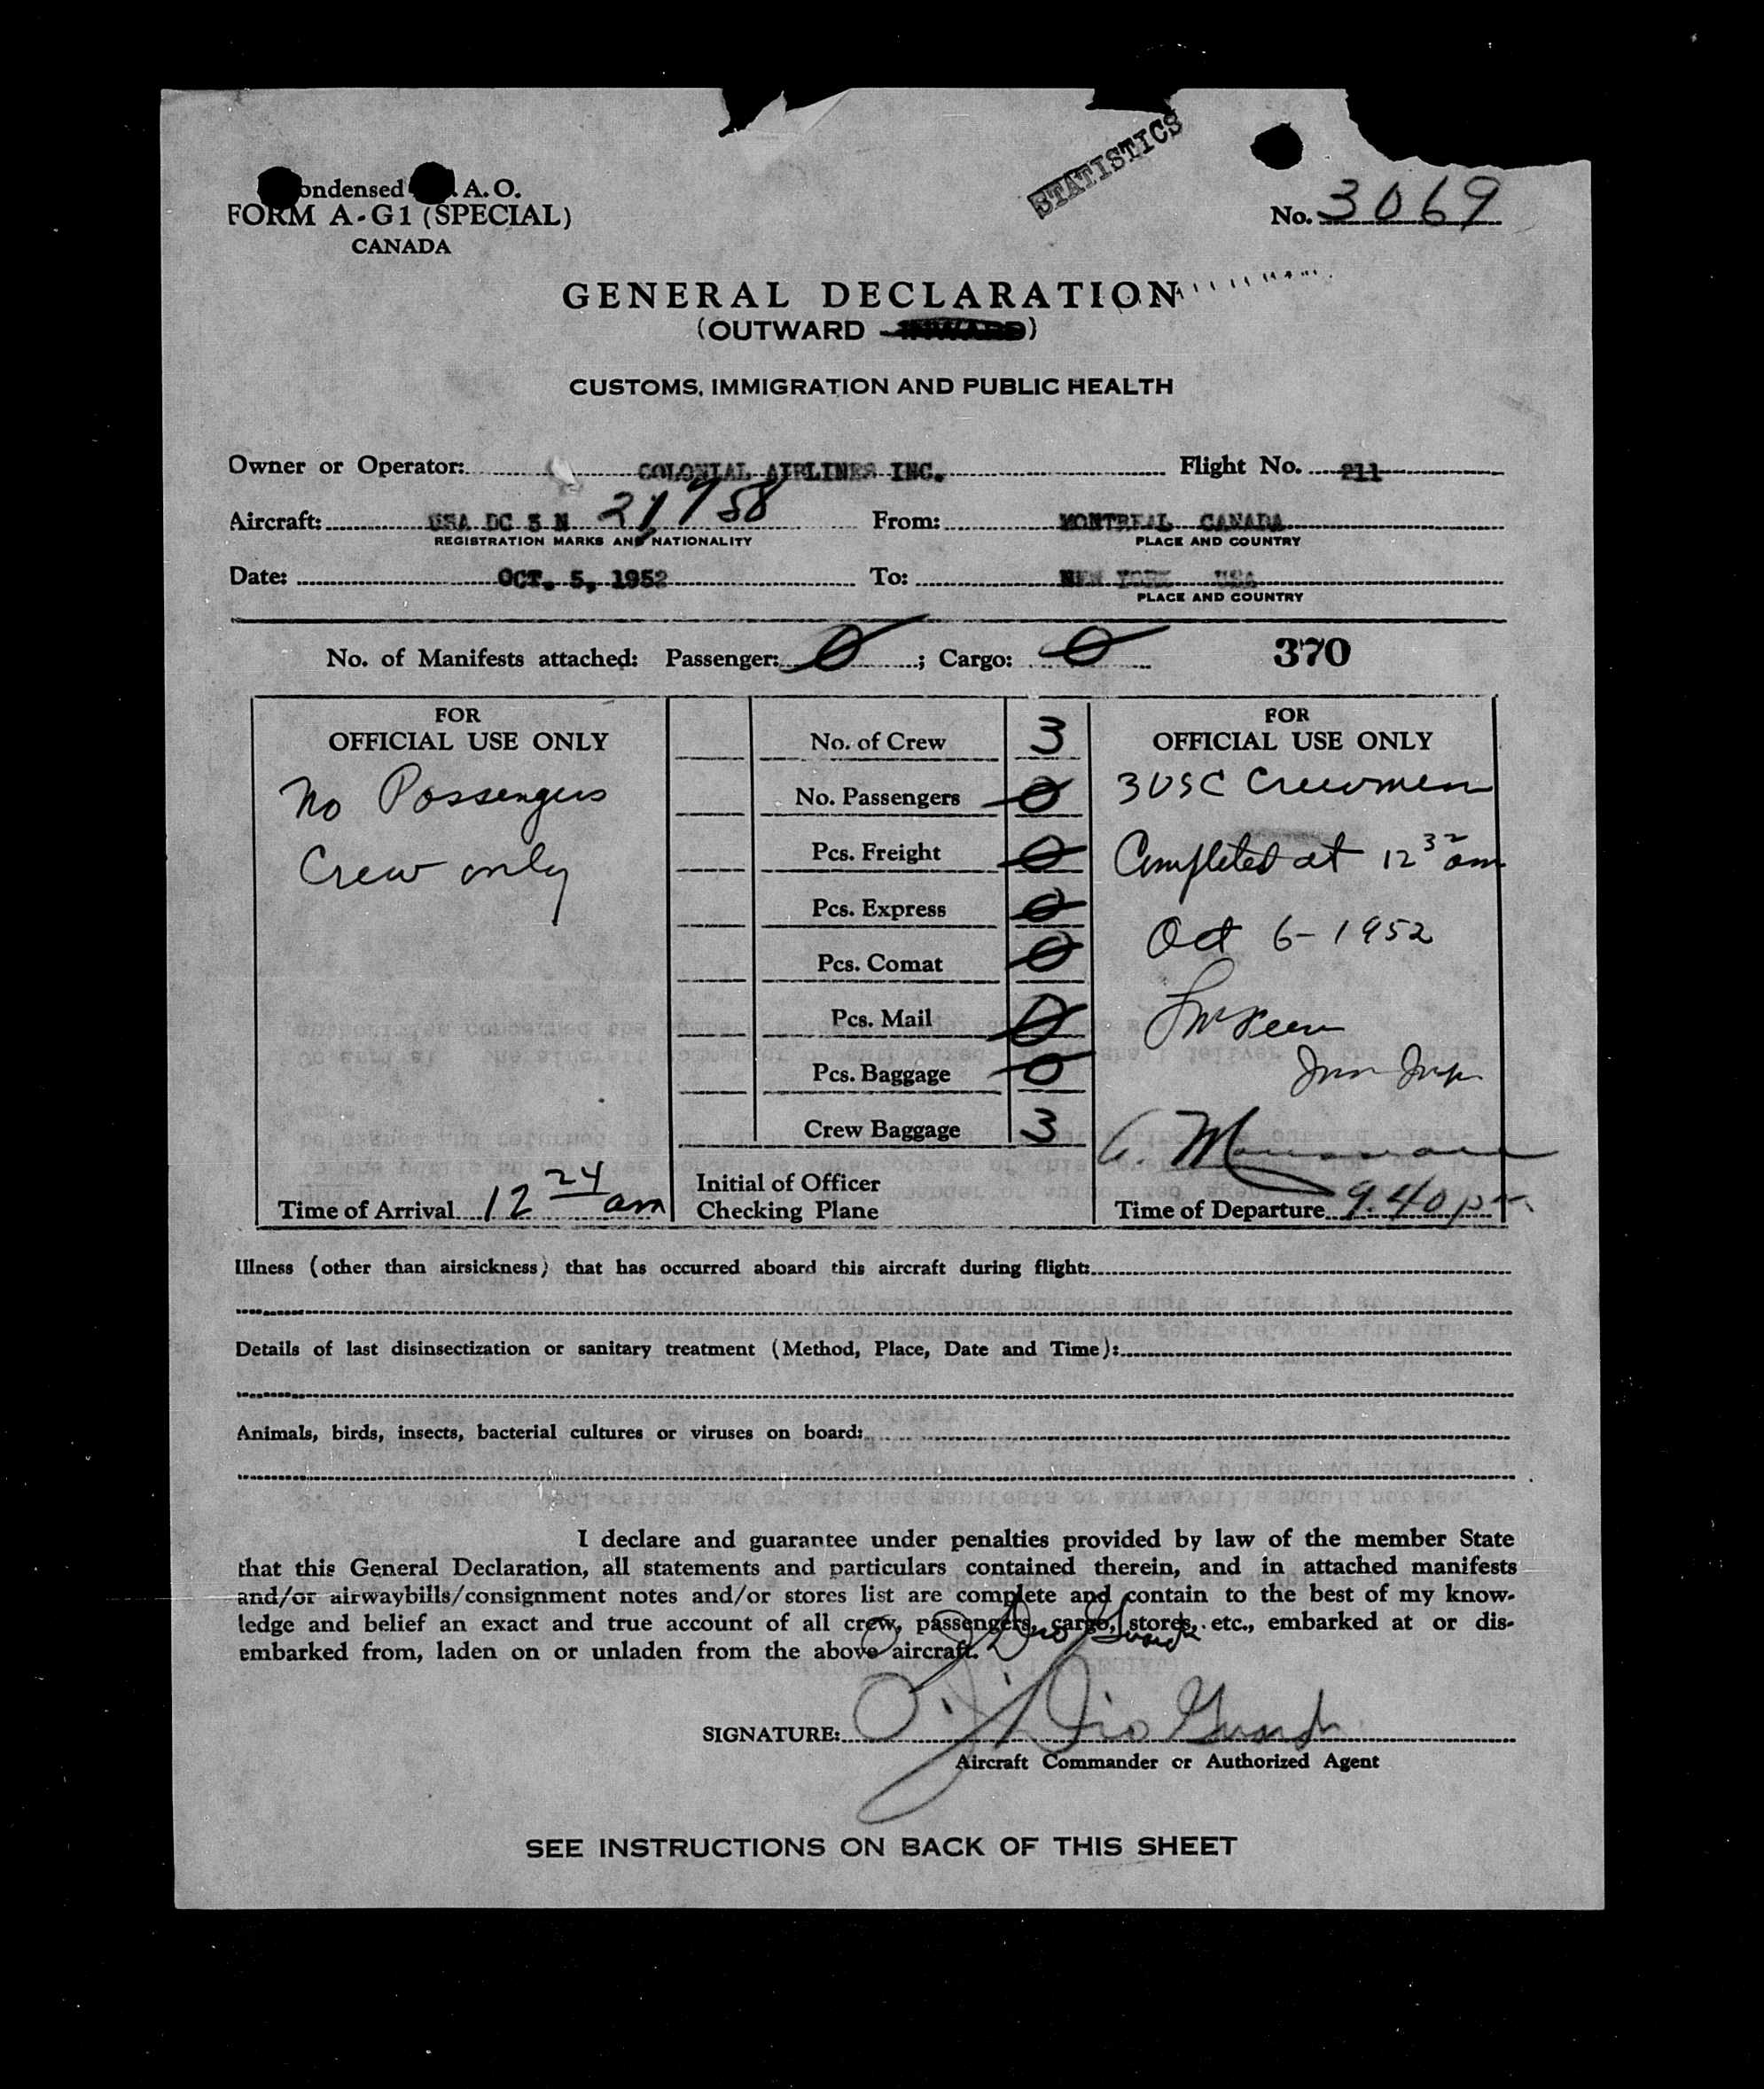 STATISTICS
ondensed A. O.
FORM A-G1 (SPECIAL)
CANADA
No. 3069
GENERAL DECLARATION
(OUTWARD )
CUSTOMS, IMMIGRATION AND PUBLIC HEALTH
Owner or Operator: COLONIAL AIRLINES INC. Flight No. 211
Aircraft: USA DC 3 N 21758 From: MONTREAL CANADA
REGISTRATION MARKS AND NATIONALITY PLACE AND COUNTRY
Date: OCT. 5, 1952 To: NEW YORK USA
PLACE AND COUNTRY
No. of Manifests attached: Passenger: 0 ; Cargo: 0 370
FOR
OFFICIAL USE ONLY
No Passengers
Crew only
Time of Arrival 12 24 am
No. of Crew 3
No. Passengers 0
Pcs. Freight 0
Pcs. Express 0
Pcs. Comat 0
Pcs. Mail 0
Pcs. Baggage 0
Crew Baggage 3
Initial of Officer
Checking Plane
FOR
OFFICIAL USE ONLY
3 USC Crewmen
Completed at 12 32 am
Oct 6-1952
Imm Insp
Time of Departure 9.40 p
Illness (other than airsickness) that has occurred aboard this aircraft during flight:
Details of last disinsectization or sanitary treatment (Method, Place, Date and Time):
Animals, birds, insects, bacterial cultures or viruses on board:
I declare and guarantee under penalties provided by law of the member State
that this General Declaration, all statements and particulars contained therein, and in attached manifests
and/or airwaybills/consignment notes and/or stores list are complete and contain to the best of my know-
ledge and belief an exact and true account of all crew, passengers, cargo, stores, etc., embarked at or dis-
embarked from, laden on or unladen from the above aircraft.
SIGNATURE:
Aircraft Commander or Authorized Agent
SEE INSTRUCTIONS ON BACK OF THIS SHEET